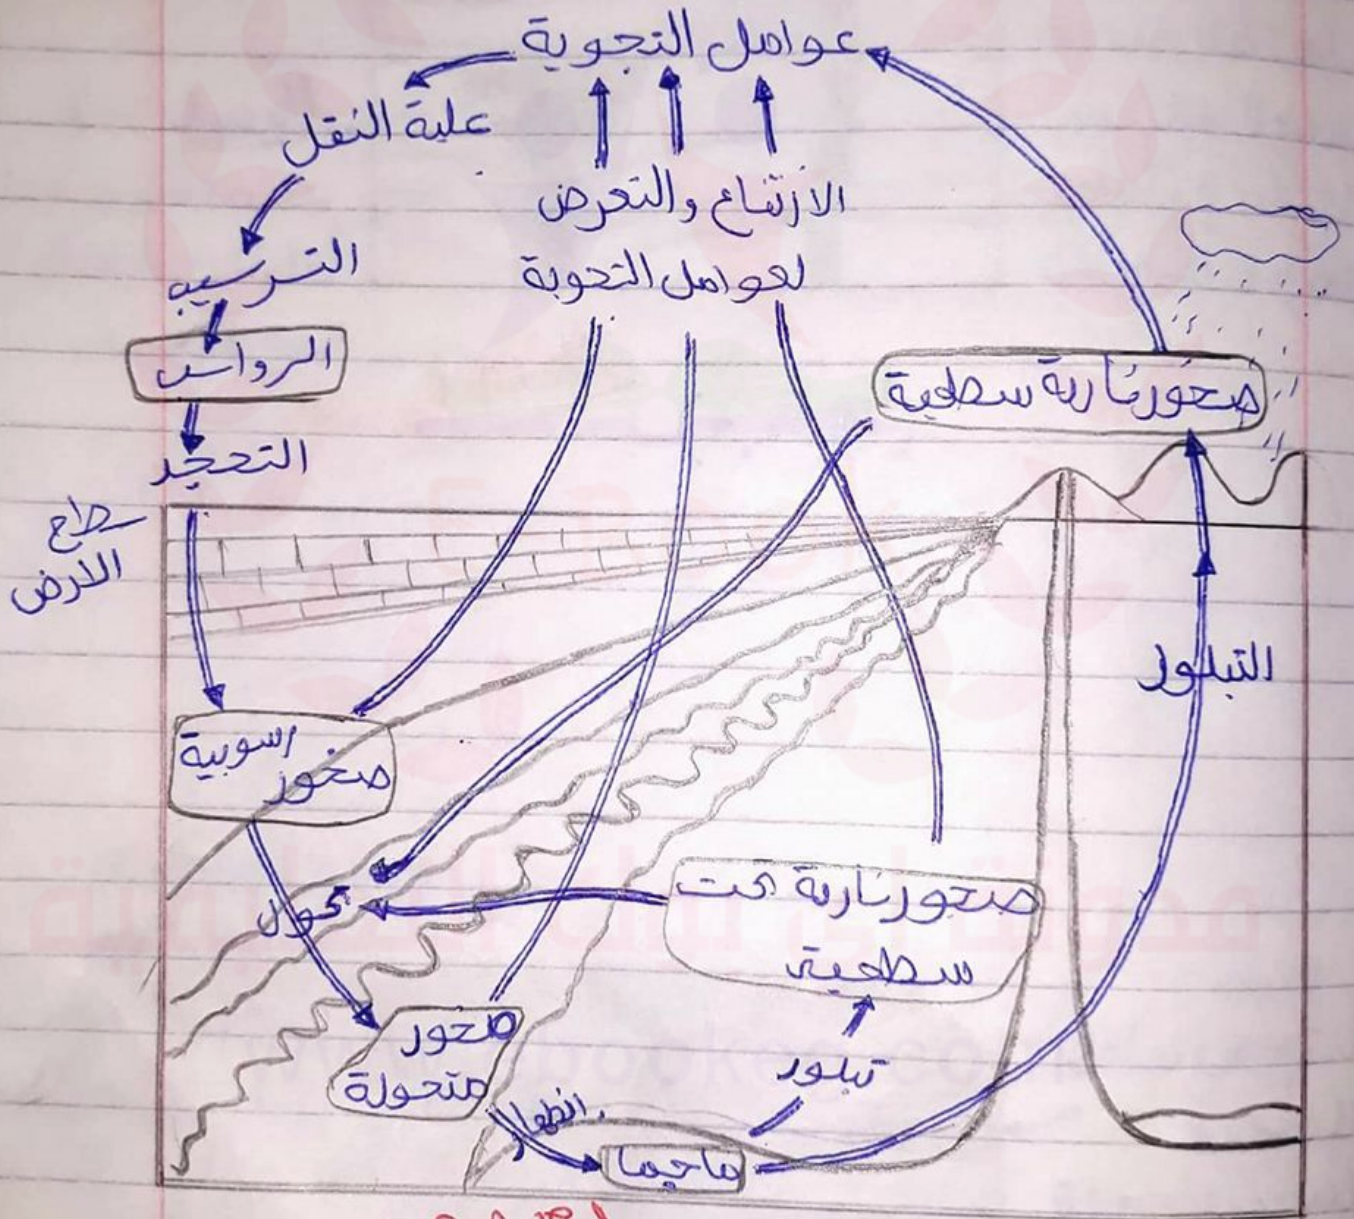 عوامل التجوية
علية النقل
الارتفاع والتعرض
لعوامل التجوية
الترسيب
الرواسب
صخور نارية سطحية
التحجر
سطح
الأرض
التبلور
صخور رسوبية
تحول
صخور نارية تحت
سطحية
صخور
متحولة
تبلور
انصهار
ماجما